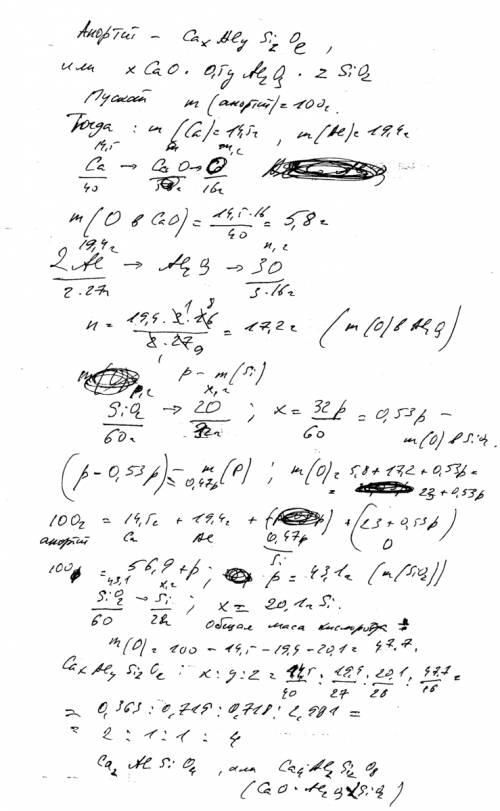 Анортит – CaxAlySizOe ,
или xCaO · 0,5yAl2O3 · zSiO2
Пускай m(анортит) = 100г.
Тогда : m(Ca) = 14,5г , m(Al) = 19,4г
14,5 m, г
Ca → CaO → O
40 16г
m(O в CaO) = 14,5·16/40 = 5,8г
19,4г n, г
2Al → Al2O3 → 3O
2·27 3·16г
n = 19,4·3·16/2·27 = 17,2г (m(O) в Al2O3)
p – m(Si)
p, г x, г
SiO2 → 2O ; x = 32p/60 = 0,53p –
60г 32г m(O) в SiO2.
(p – 0,53p) = 0,47p m(P) ; m(O) = 5,8 + 17,2 + 0,53p =
= 23 + 0,53p
100г = 14,5г + 19,4г + 0,47p + (23 + 0,53p)
анортит Ca Al Si O
100 = 56,9 + p ; p = 43,1г (m(SiO2))
43,1 x, г
SiO2 → Si ; x = 20,1г Si.
60 28
Общая маса кислорода
m(O) = 100 – 14,5 – 19,4 – 20,1 = 47.7.
CaxAlySizOe : x : y : z = 14,5/40 : 19,4/27 : 20,1/28 : 47.7/16 =
= 0,363 : 0,719 : 0,718 : 2,981 =
= 2 : 1 : 1 : 4
Ca2AlSiO4 , или Ca4Al2Si2O8
(CaO · Al2O3 · 2SiO2)